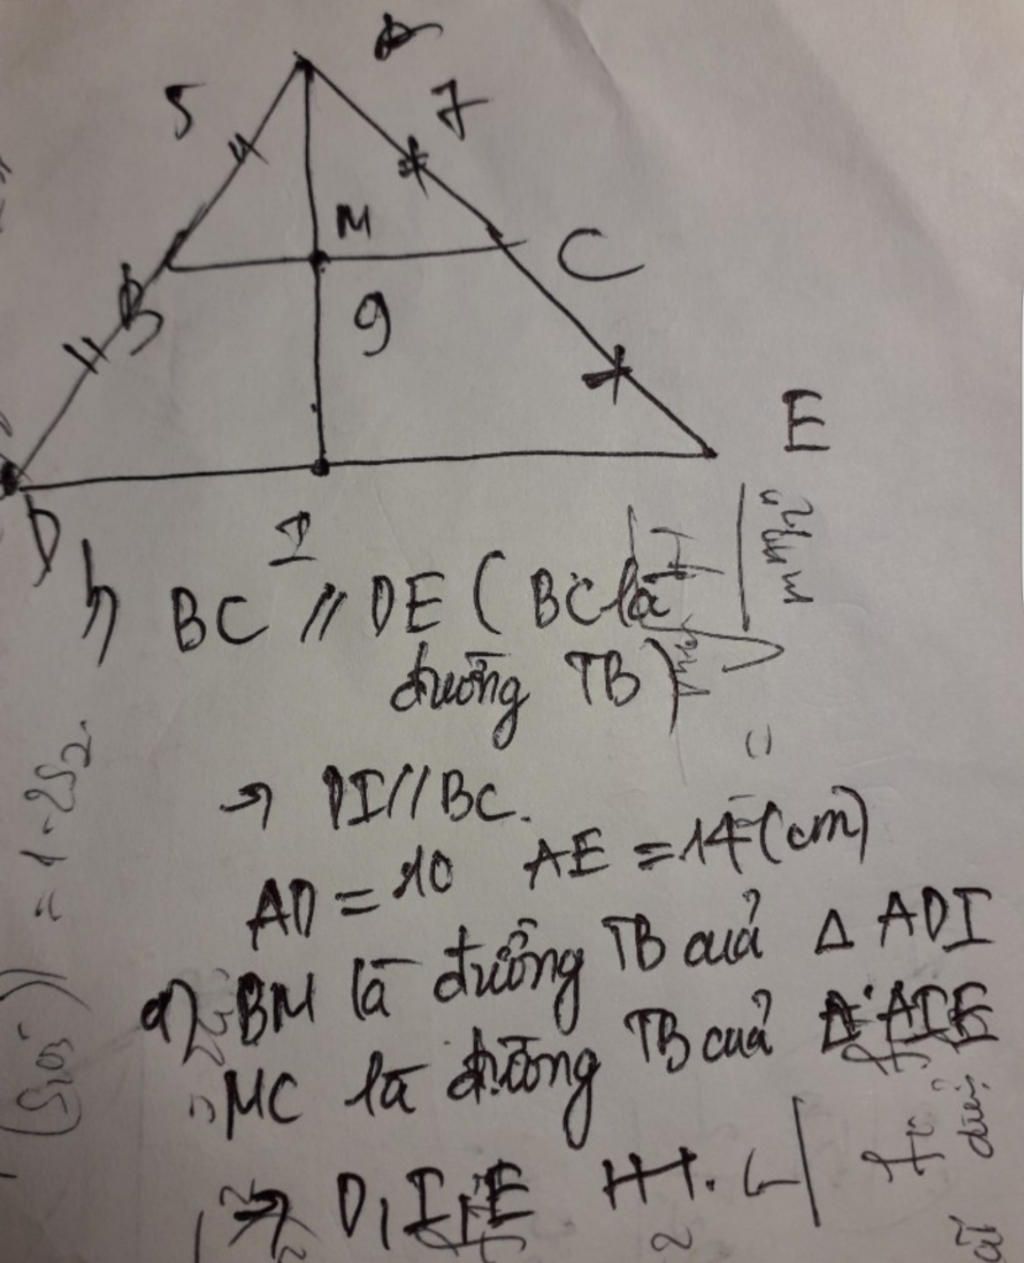 A
5
7
M
B
C
9
E
D
I
b) BC // DE ( BC là
đường TB )
→ DI // BC.
AD = 10 AE = 14 (cm)
a) BM là đường TB cuả Δ ADI
MC là đường TB cuả Δ AIE
⇒ D, I, E
= 1 - 2S2